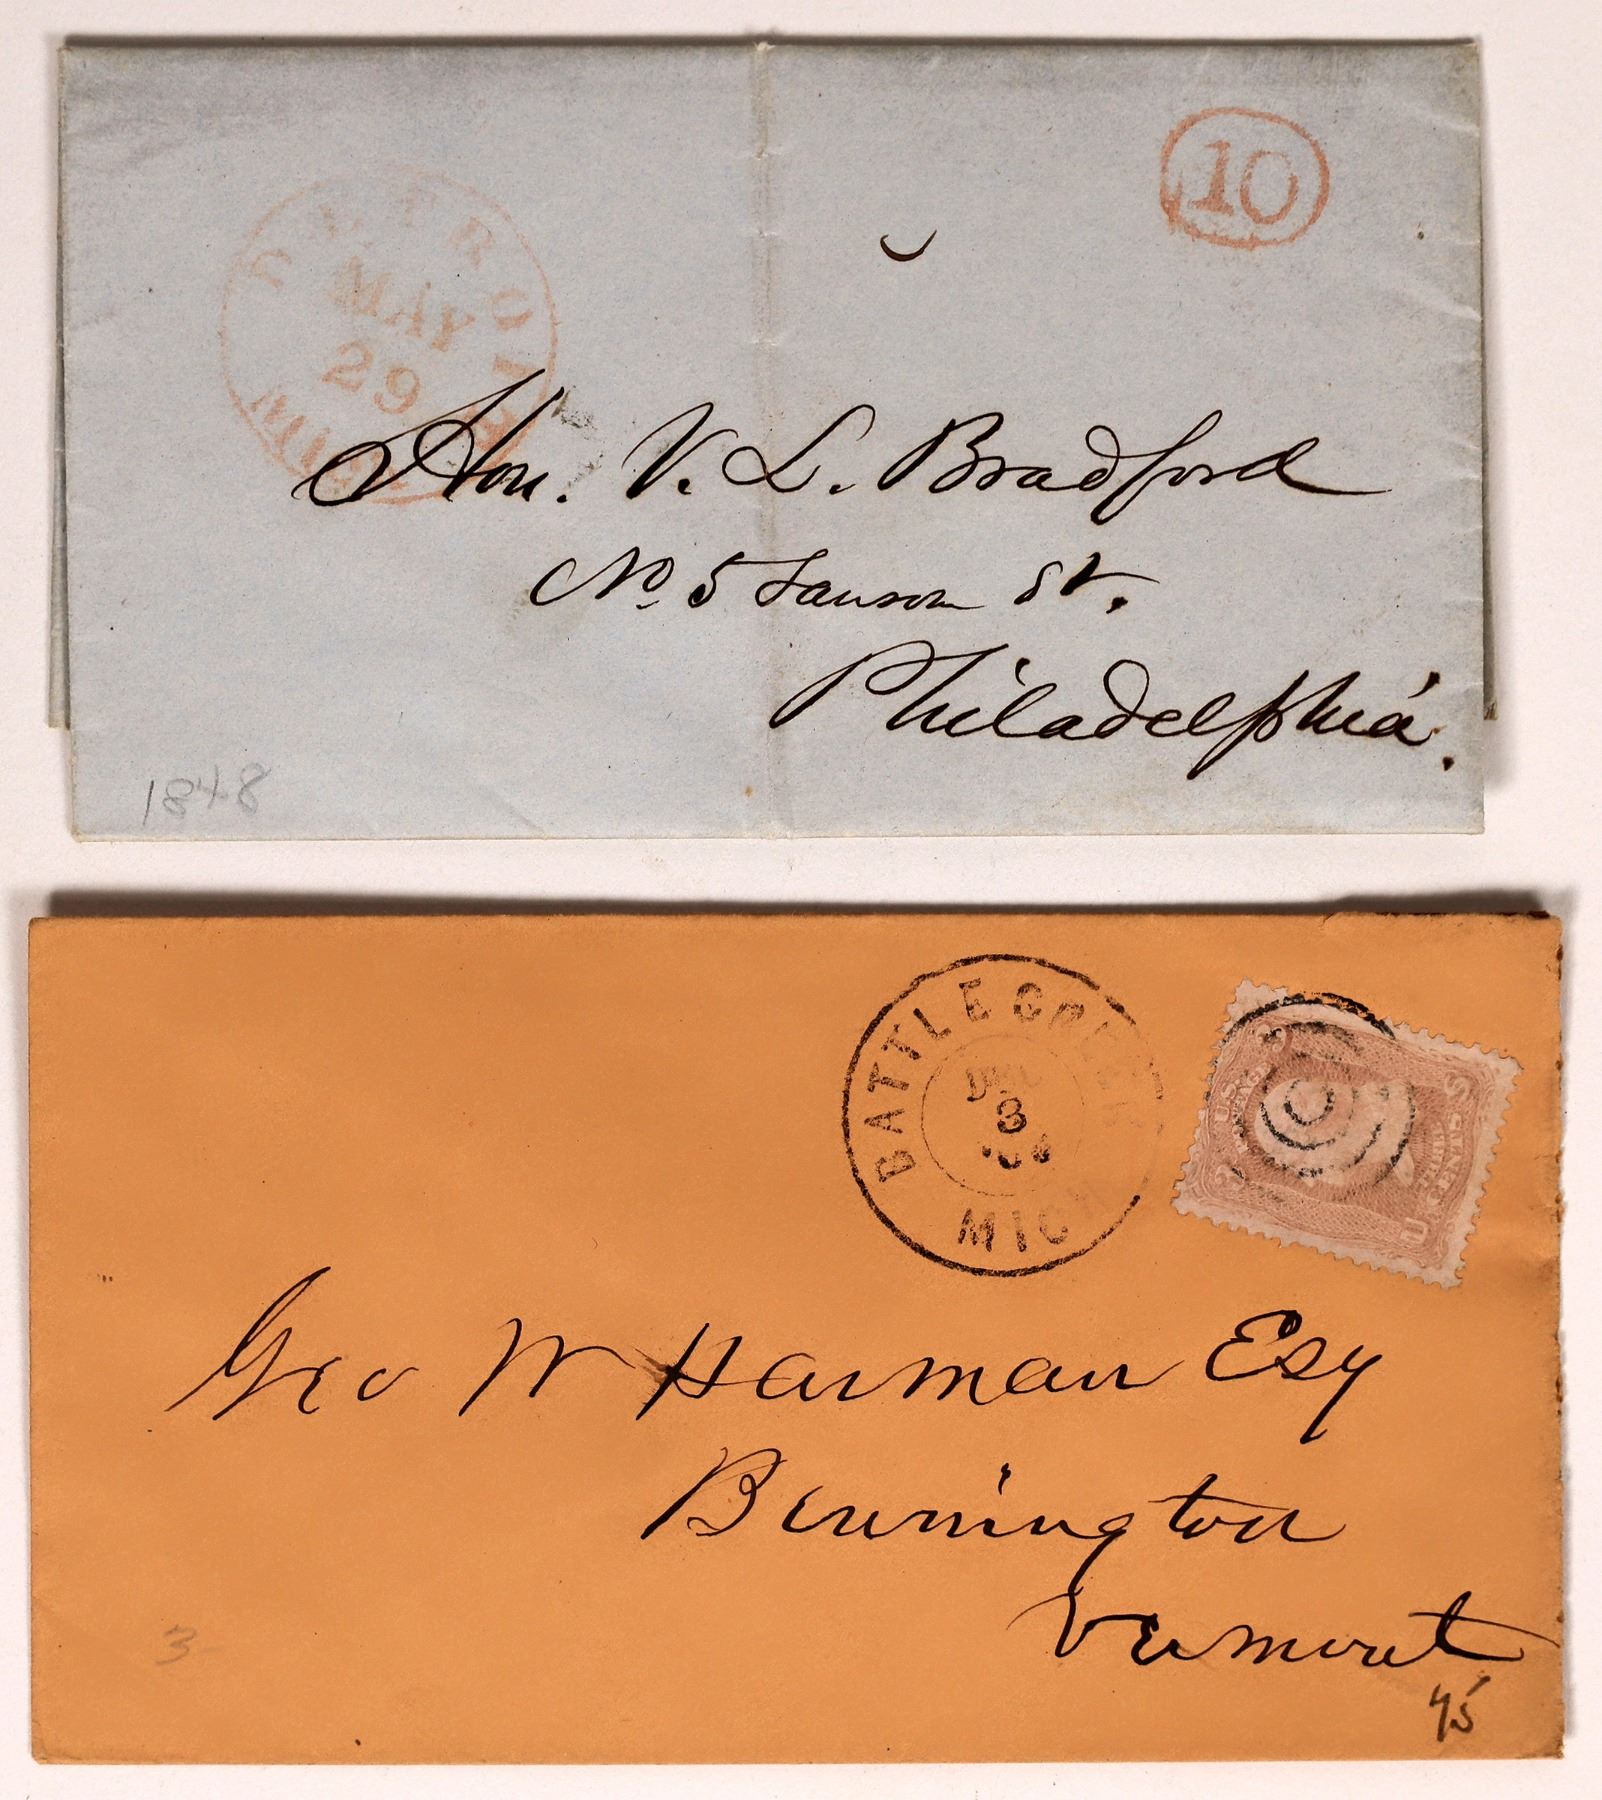 DETROIT
MAY
29
MICH
10
Hon. V. L. Bradford
No 5 Sansom St.
Philadelphia.
1848
BATTLE CREEK
DEC
3
MICH
U
S
Geo W Harman Esq
Bennington
Vermont
3-
75